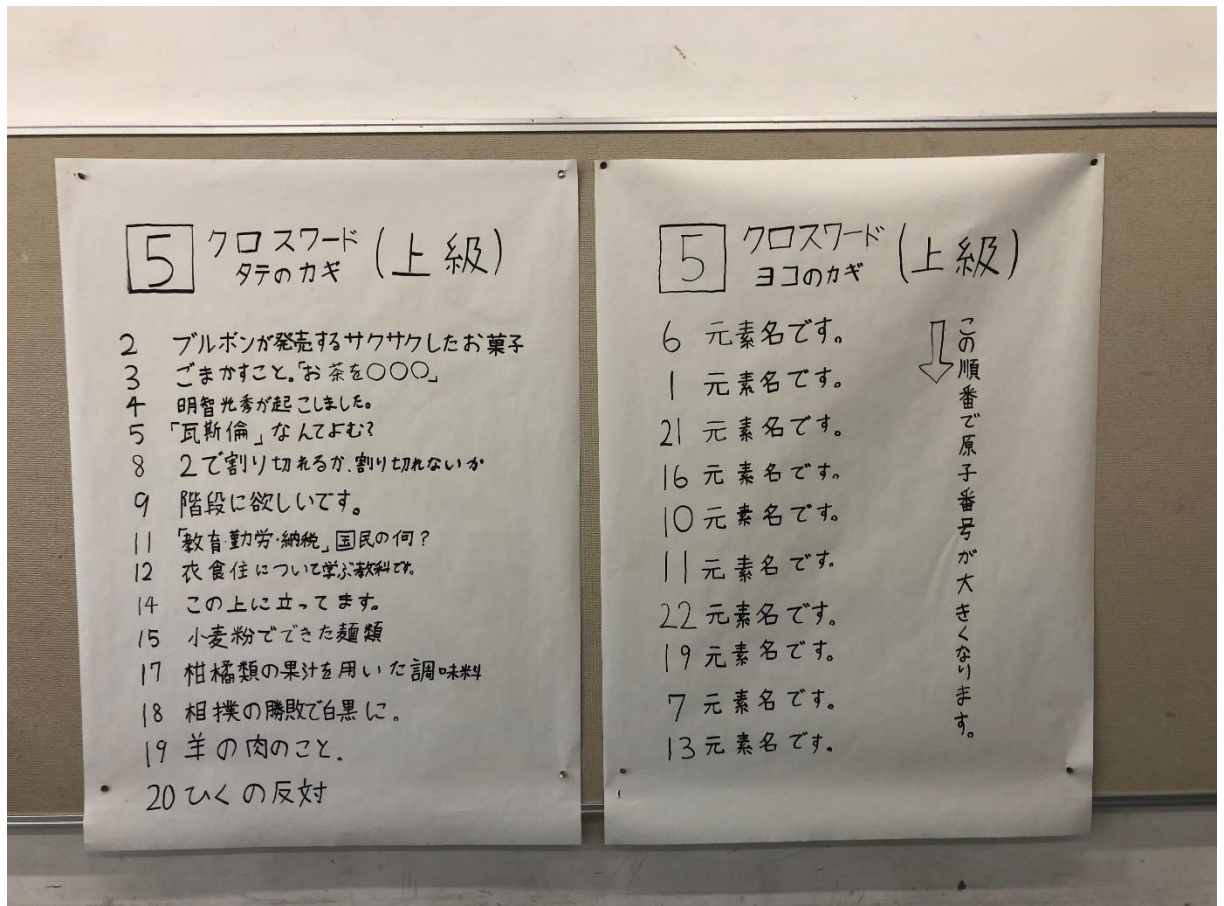 5 クロスワード (上級)
タテのカギ
2 ブルボンが発売するサクサクしたお菓子
3 ごまかすこと。「お茶を〇〇〇」
4 明智光秀が起こしました。
5 「瓦斯倫」なんてよむ?
8 2で割り切れるか、割り切れないか
9 階段に欲しいです。
11 「教育・勤労・納税」国民の何?
12 衣食住について学ぶ教科です。
14 この上に立ってます。
15 小麦粉でできた麺類
17 柑橘類の果汁を用いた調味料
18 相撲の勝敗で白黒に。
19 羊の肉のこと。
20 ひくの反対
5 クロスワード (上級)
ヨコのカギ
6 元素名です。
1 元素名です。
21 元素名です。
16 元素名です。
10 元素名です。
11 元素名です。
22 元素名です。
19 元素名です。
7 元素名です。
13 元素名です。
この順番で原子番号が大きくなります。